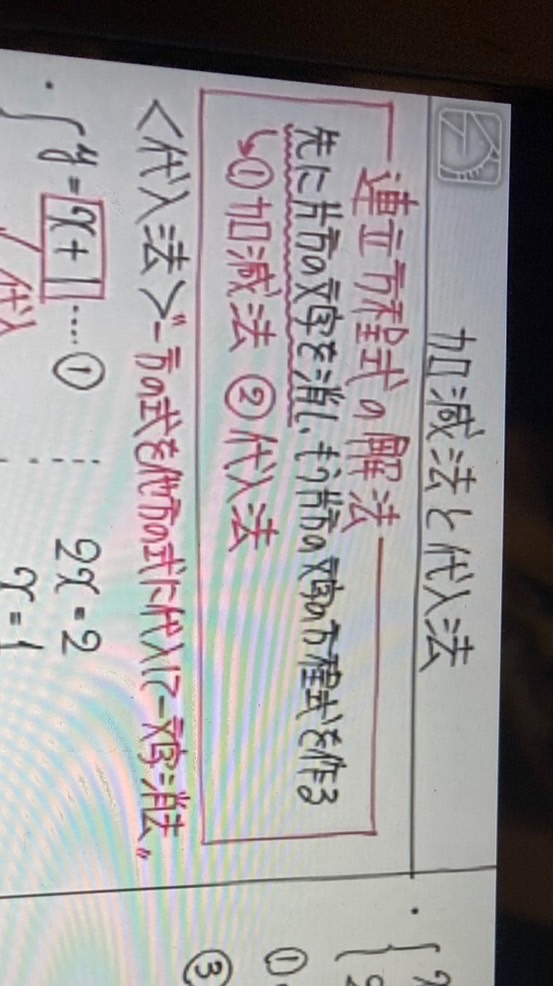 加減法と代入法
連立方程式の解法
先に片方の文字を消し、もう片方の文字の方程式を作る
↳①加減法 ②代入法
<代入法>"一方の式を他方の式に代入して一文字消去"
・{ y = x + 1 … ①
代入
2x = 2
x = 1
①
③